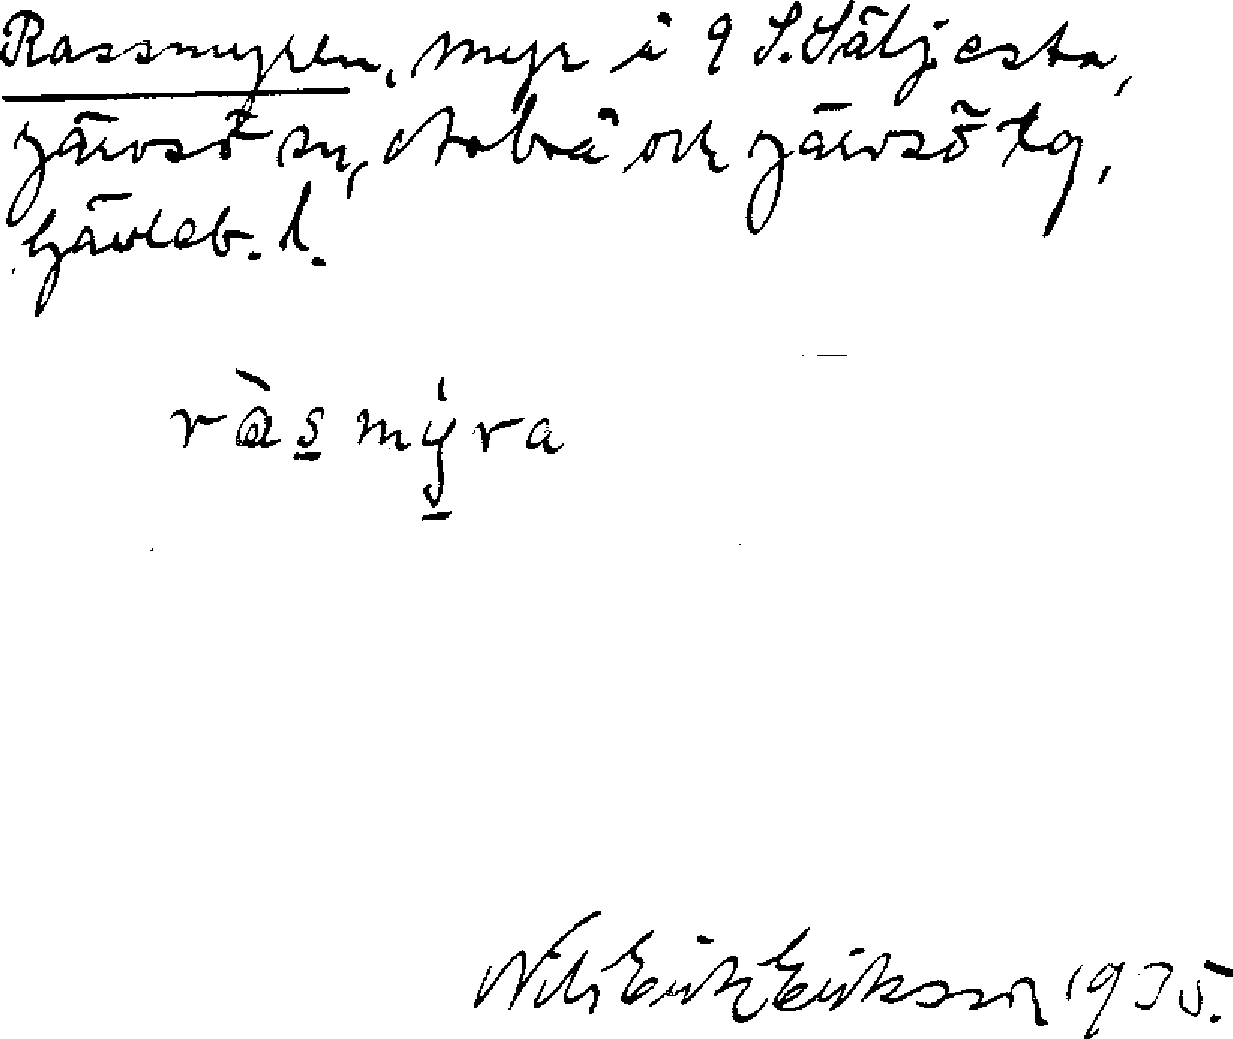 Rassmyren, myr i 9 S. Säljesta,
Järvsö sn, Arbrå och Järvsö tg,
Gävleb. l.
ràsmýra
Nils Erik Eriksson 1935.